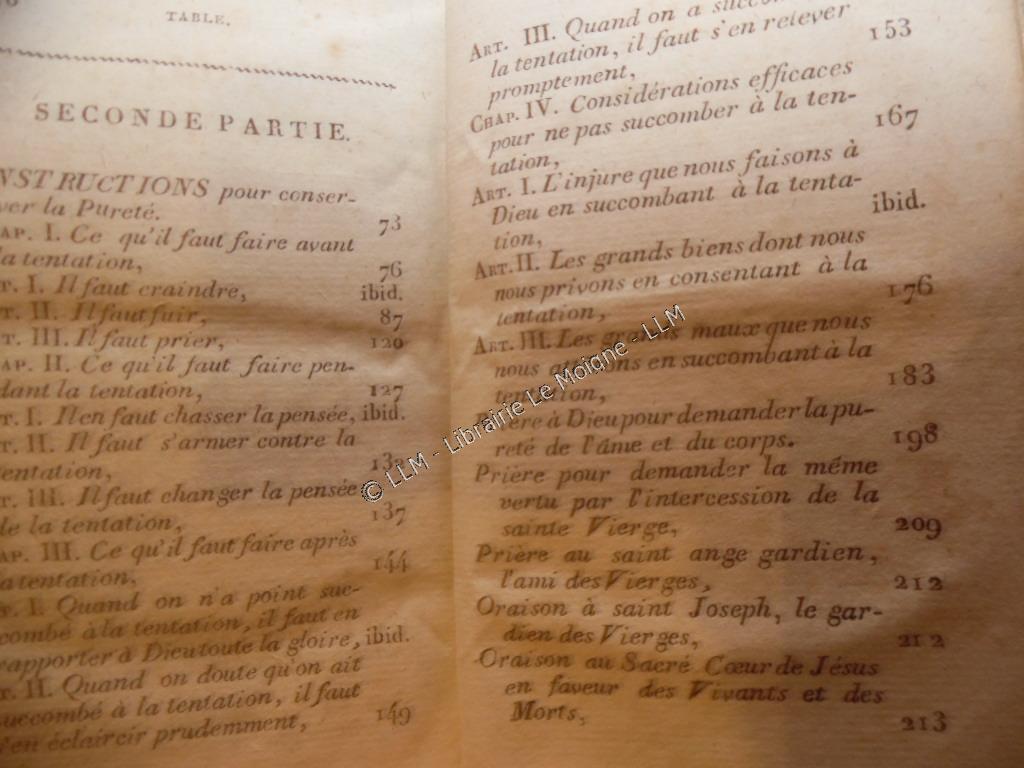 TABLE.
SECONDE PARTIE.
NSTRUCTIONS pour conser-
ver la Pureté. 73
AP. I. Ce qu'il faut faire avant
la tentation, 76
T. I. Il faut craindre, ibid.
T. II. Il faut fuir, 87
T. III. Il faut prier, 120
AP. II. Ce qu'il faut faire pen-
dant la tentation, 127
T. I. Il en faut chasser la pensée, ibid.
T. II. Il faut s'armer contre la
tentation, 132
T. III. Il faut changer la pensée
de la tentation, 137
AP. III. Ce qu'il faut faire après
la tentation, 144
T. I. Quand on n'a point suc-
combé à la tentation, il faut en
rapporter à Dieu toute la gloire, ibid.
T. II. Quand on doute qu'on ait
succombé à la tentation, il faut
s'en éclaircir prudemment, 149
ART. III. Quand on a succom
la tentation, il faut s'en relever
promptement, 153
CHAP. IV. Considérations efficaces
pour ne pas succomber à la ten-
tation, 167
ART. I. L'injure que nous faisons à
Dieu en succombant à la tenta-
tion, ibid.
ART. II. Les grands biens dont nous
nous privons en consentant à la
tentation, 176
ART. III. Les grands maux que nous
nous attirons en succombant à la
tentation, 183
Prière à Dieu pour demander la pu-
reté de l'âme et du corps. 198
Prière pour demander la même
vertu par l'intercession de la
sainte Vierge, 209
Prière au saint ange gardien,
l'ami des Vierges, 212
Oraison à saint Joseph, le gar-
dien des Vierges, 212
Oraison au Sacré Cœur de Jésus
en faveur des Vivants et des
Morts, 213
© LLM - Librairie Le Moigne - LLM